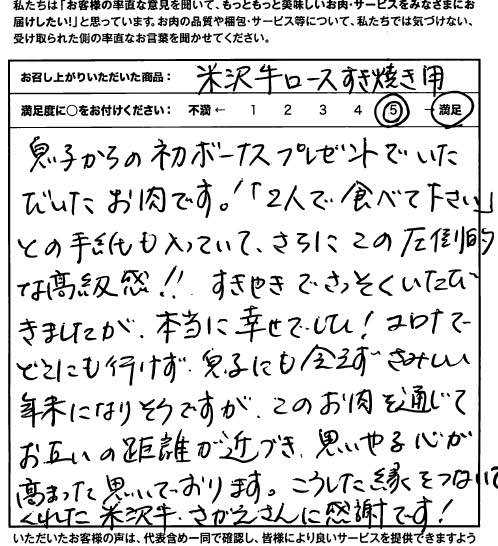 私たちは「お客様の率直な意見を聞いて、もっともっと美味しいお肉・サービスをみなさまにお
届けしたい!」と思っています。お肉の品質や梱包・サービス等について、私たちでは気づけない、
受け取られた側の率直なお言葉を聞かせてください。
お召し上がりいただいた商品: 米沢牛ロースすき焼き用
満足度に○をお付けください: 不満 ← 1 2 3 4 5 → 満足
息子からの初ボーナスプレゼントでいた
だいたお肉です。!「2人で食べて下さい」
との手紙も入っていて、さらにこの圧倒的
な高級感!! すきやきでさっそくいただ
きましたが、本当に幸せでした! コロナで
どこにも行けず、息子にも会えずさみしい
年末になりそうですが、このお肉を通じて
お互いの距離が近づき、思いやる心が
高まったと思いております。こうした縁をつないで
くれた米沢牛、さかえさんに感謝です!
いただいたお客様の声は、代表含め一同で確認し、皆様により良いサービスを提供できますよう